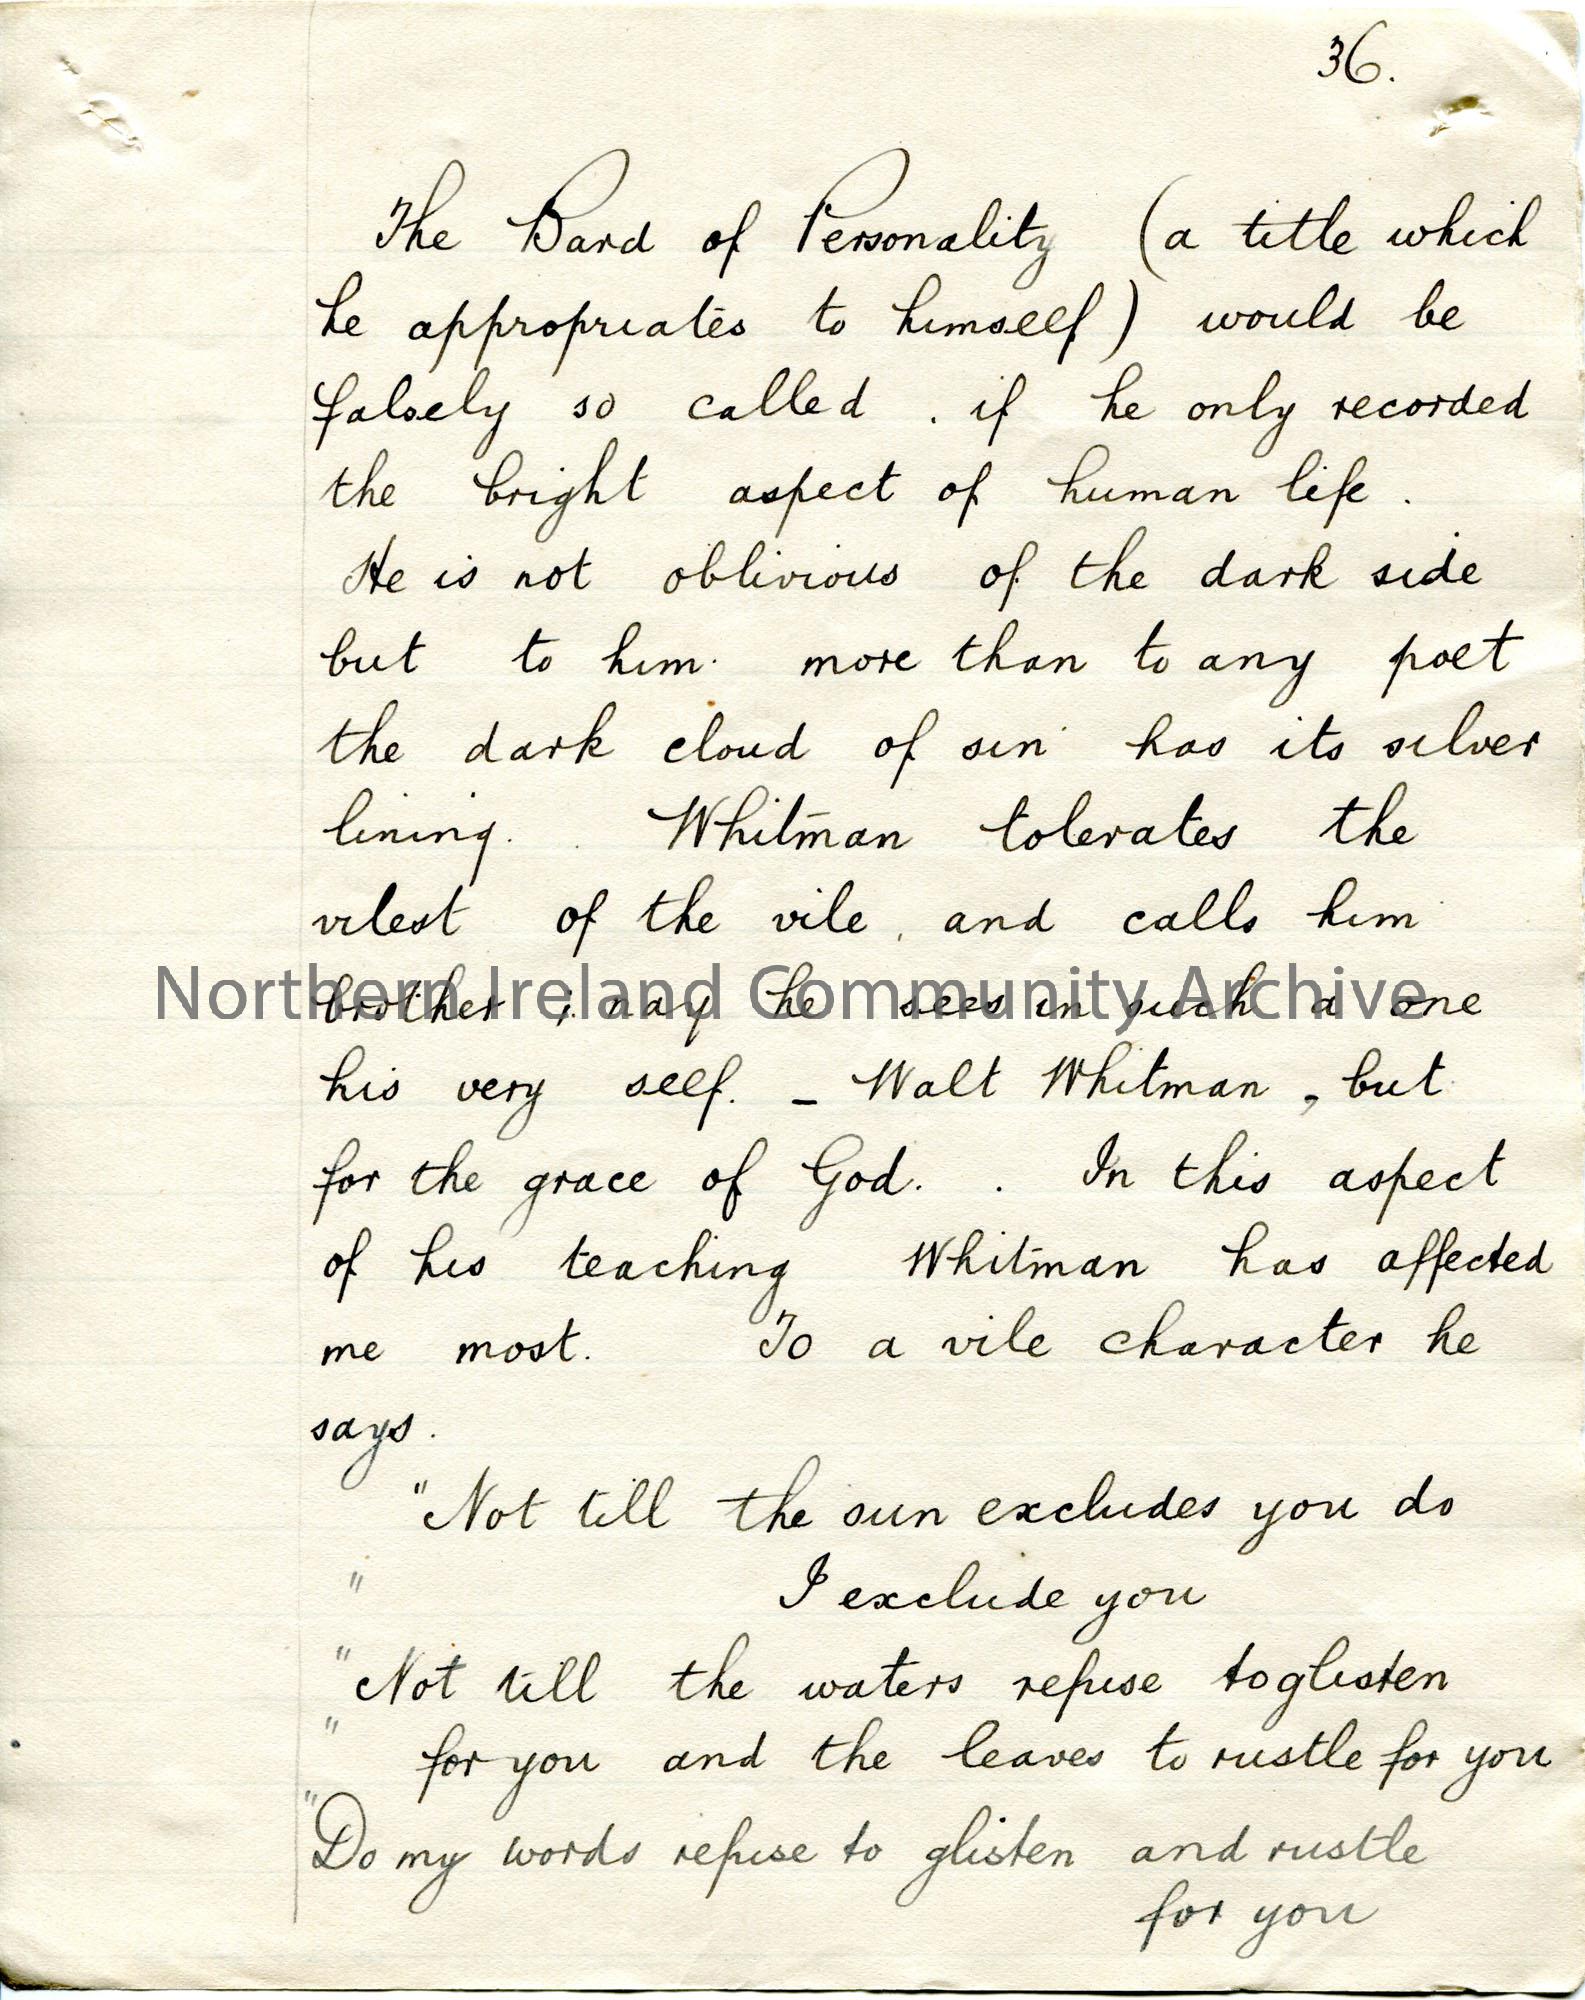 36.
The Bard of Personality (a title which
he appropriates to himself) would be
falsely so called . if he only recorded
the bright aspect of human life .
He is not oblivious of the dark side
but to him more than to any poet
the dark cloud of sin has its silver
lining. Whitman tolerates the
vilest of the vile , and calls him
brother ; nay he sees in such a one
his very self. - Walt Whitman , but
for the grace of God. . In this aspect
of his teaching Whitman has affected
me most. To a vile character he
says .
"Not till the sun excludes you do
" I exclude you
"Not till the waters refuse to glisten
" for you and the leaves to rustle for you
"Do my words refuse to glisten and rustle
for you
Northern Ireland Community Archive